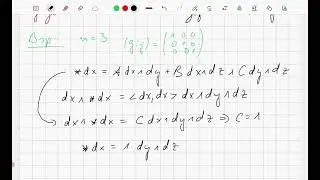 Bsp: n=3 (g_ij) = (1 0 0
0 0
0 0
*dx = A dx∧dy + B dx∧dz + C dy∧dz
dx∧*dx = <dx,dx> dx∧dy∧dz
dx∧*dx = C dx∧dy∧dz ⇒ C=1
*dx = 1 dy∧dz